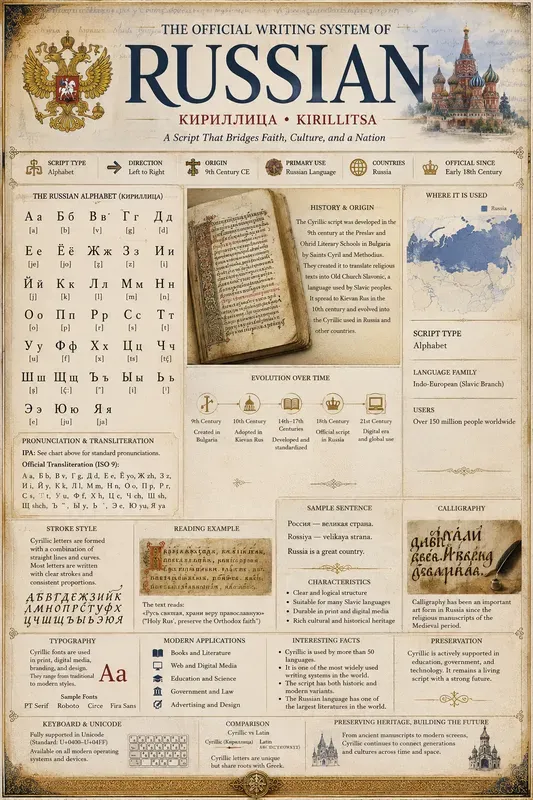 THE OFFICIAL WRITING SYSTEM OF
RUSSIAN
КИРИЛЛИЦА • KIRILLITSA
A Script That Bridges Faith, Culture, and a Nation
SCRIPT TYPE
Alphabet
DIRECTION
Left to Right
ORIGIN
9th Century CE
PRIMARY USE
Russian Language
COUNTRIES
Russia
OFFICIAL SINCE
Early 18th Century
THE RUSSIAN ALPHABET (КИРИЛЛИЦА)
Аа Бб Вв Гг Дд
[a] [b] [v] [g] [d]
Ее Ёё Жж Зз Ии
[je] [jo] [ʐ] [z] [i]
Йй Кк Лл Мм Нн
[j] [k] [l] [m] [n]
Оо Пп Рр Сс Тт
[o] [p] [r] [s] [t]
Уу Фф Хх Цц Чч
[u] [f] [x] [ts] [tɕ]
Шш Щщ Ъъ Ыы Ьь
Ээ Юю Яя
[e] [ju] [ja]
PRONUNCIATION & TRANSLITERATION
IPA: See chart above for standard pronunciations.
Official Transliteration (ISO 9):
HISTORY & ORIGIN
The Cyrillic script was developed in the
9th century at the Preslav and
Ohrid Literary Schools in Bulgaria
by Saints Cyril and Methodius.
They created it to translate religious
texts into Old Church Slavonic, a
language used by Slavic peoples.
It spread to Kievan Rus in the
10th century and evolved into
the Cyrillic used in Russia and
other countries.
WHERE IT IS USED
Russia
SCRIPT TYPE
Alphabet
LANGUAGE FAMILY
Indo-European (Slavic Branch)
USERS
Over 150 million people worldwide
EVOLUTION OVER TIME
9th Century
Created in
Bulgaria
10th Century
Adopted in
Kievan Rus
14th–17th
Centuries
Developed and
standardized
18th Century
Official script
in Russia
21st Century
Digital era
and global use
STROKE STYLE
Cyrillic letters are formed
with a combination of
straight lines and curves.
Most letters are written
with clear strokes and
consistent proportions.
READING EXAMPLE
The text reads:
«Русь святая, храни веру православную»
("Holy Rus', preserve the Orthodox faith")
SAMPLE SENTENCE
Россия — великая страна.
Rossiya — velikaya strana.
Russia is a great country.
CHARACTERISTICS
• Clear and logical structure
• Suitable for many Slavic languages
• Durable in print and digital media
• Rich cultural and historical heritage
CALLIGRAPHY
Calligraphy has been an important
art form in Russia since the
religious manuscripts of the
Medieval period.
TYPOGRAPHY
Cyrillic fonts are used
in print, digital media,
branding, and design.
They range from traditional
to modern styles.
Aa
Sample Fonts
PT Serif Roboto Circe Fira Sans
MODERN APPLICATIONS
Books and Literature
Web and Digital Media
Education and Science
Government and Law
Advertising and Design
INTERESTING FACTS
• Cyrillic is used by more than 50
languages.
• It is one of the most widely used
writing systems in the world.
• The script has both historic and
modern variants.
• The Russian language has one of
the largest literatures in the world.
PRESERVATION
Cyrillic is actively supported in
education, government, and
technology. It remains a living
script with a strong future.
KEYBOARD & UNICODE
Fully supported in Unicode
(Standard: U+0400–U+04FF)
Available on all modern operating
systems and devices.
COMPARISON
Cyrillic vs Latin
Cyrillic (Кириллица)
Latin
Cyrillic letters are unique
but share roots with Greek.
PRESERVING HERITAGE, BUILDING THE FUTURE
From ancient manuscripts to modern screens,
Cyrillic continues to connect generations
and cultures across time and space.